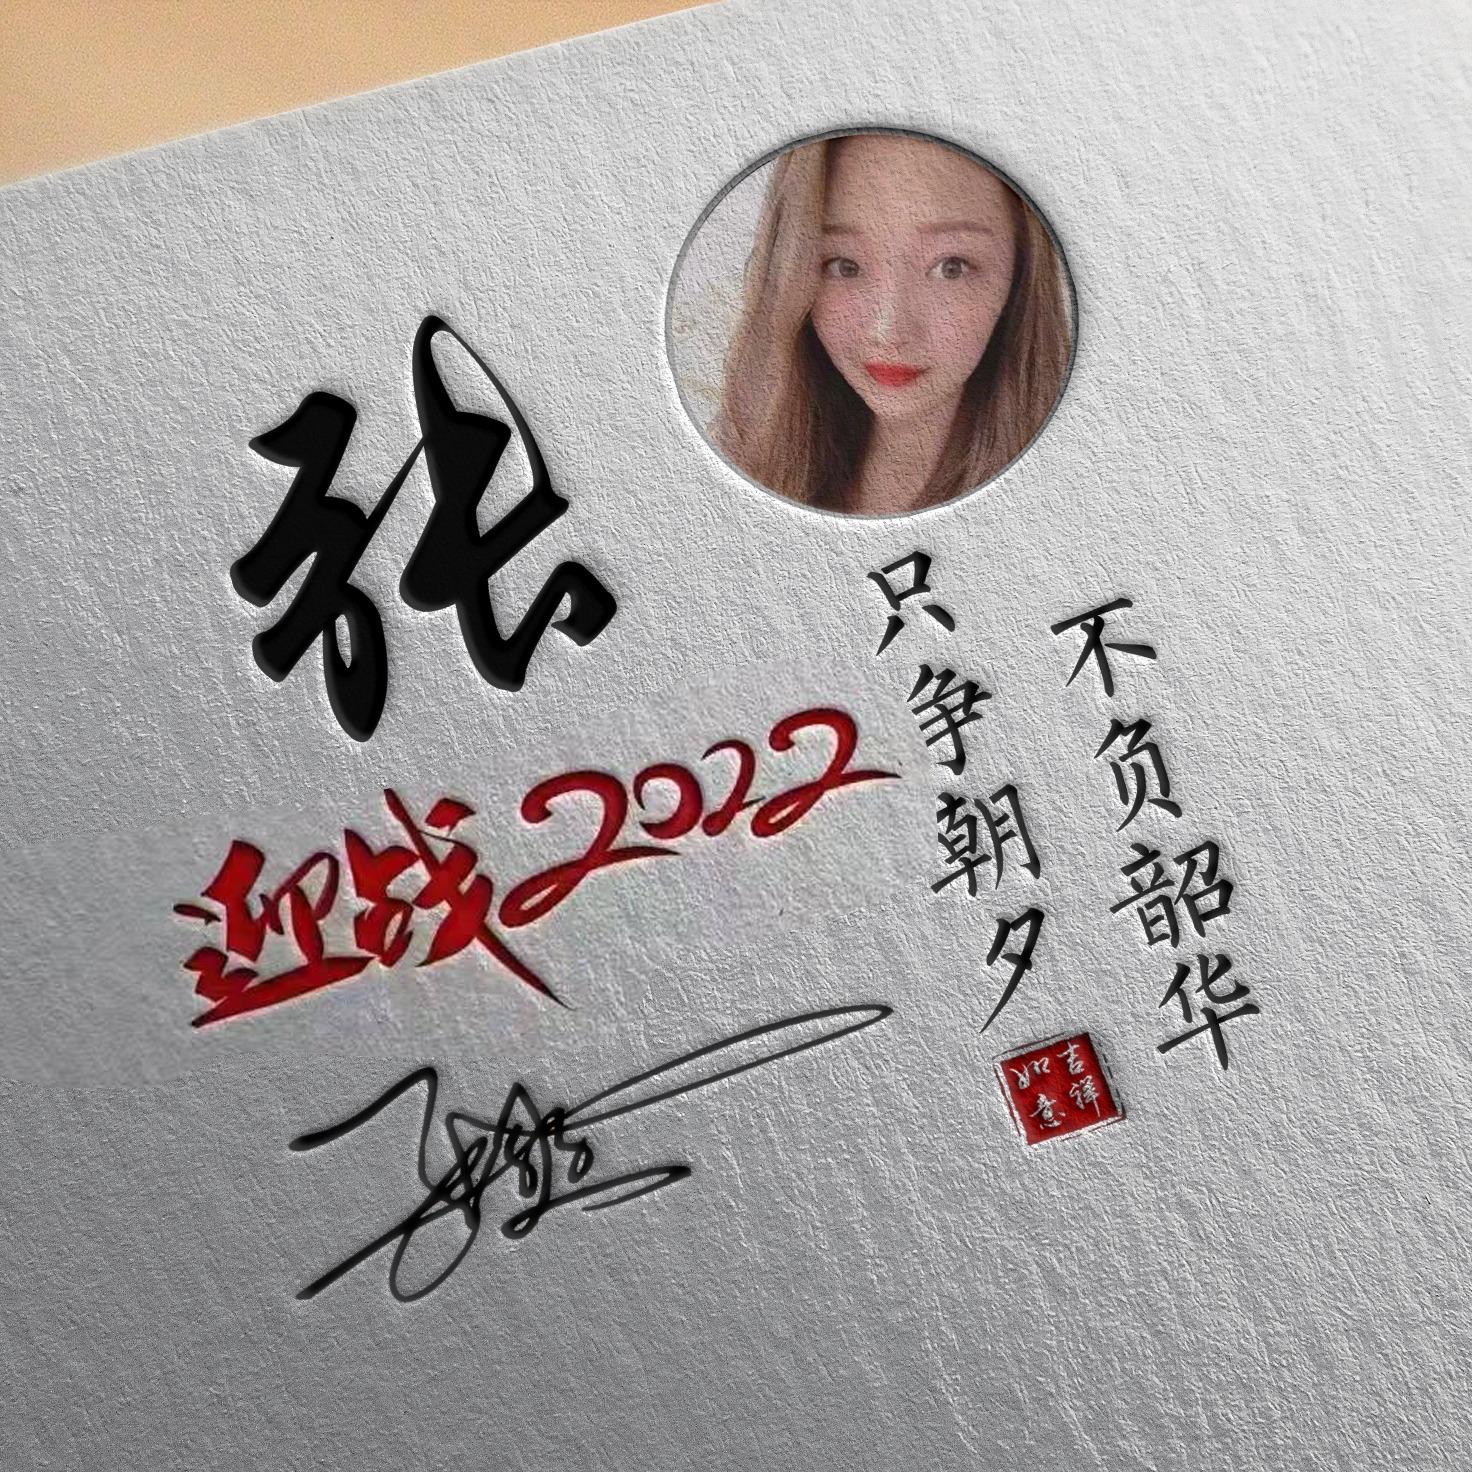 张
迎战2022
只争朝夕
不负韶华
吉祥
如意